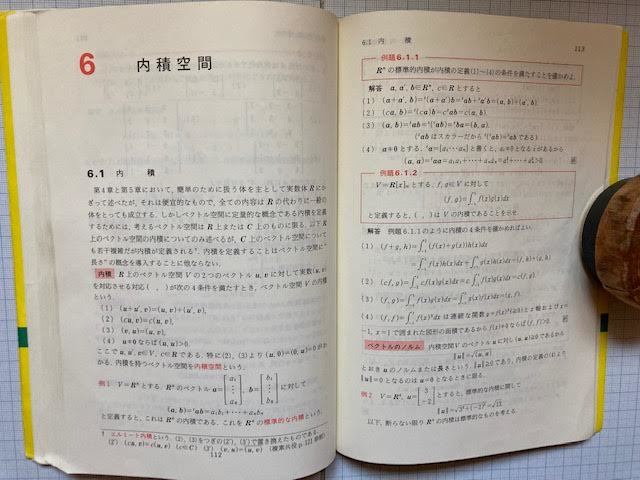 6 内積空間
6.1 内 積
第4章と第5章において，簡単のために扱う体を主として実数体 R にか
ぎって述べたが，それは便宜的なもので，全ての内容は R の代わりに一般の
体をとっても成立する．しかしベクトル空間に定量的な概念である内積を定義
するためには，考えるベクトル空間は R 上または C 上のものに限る．以下 R
上のベクトル空間の内積についてのみ述べるが，C 上のベクトル空間について
も若干複雑だが内積が定義される†．内積を定義することはベクトル空間に“
長さ”の概念を導入することに他ならない．
内積 R 上のベクトル空間 V の2つのベクトル u, v に対して実数 (u, v)
を対応させる対応( , )が次の4条件を満たすとき，ベクトル空間 V の内積
という．
(1) (u+u′, v)=(u, v)+(u′, v),
(2) (cu, v)=c(u, v),
(3) (v, u)=(u, v),
(4) u≠0 ならば (u, u)>0.
ここで u, u′, v∈V, c∈R である．特に(2), (3)より (u, 0)=(0, u)=0 がわ
かる．内積を持つベクトル空間を内積空間という．
例1 V=Rⁿ とする．Rⁿ のベクトル a=[a₁ ⋮ aₙ], b=[b₁ ⋮ bₙ] に対して
(a, b)=ᵗab=a₁b₁+⋯+aₙbₙ
と定義すると，これは Rⁿ の内積である．これを Rⁿ の標準的な内積という．
† エルミート内積という．(2), (3)をつぎの(2′), (3′)で置き換えたものである．
112
6.1 内 積
113
例題6.1.1
Rⁿ の標準的内積が内積の定義(1)～(4)の条件を満たすことを確かめよ．
解答 a, a′, b∈Rⁿ, c∈R とすると
(1) (a+a′, b)=ᵗ(a+a′)b=ᵗab+ᵗa′b=(a, b)+(a′, b).
(2) (ca, b)=ᵗ(ca)b=cᵗab=c(a, b).
(3) (a, b)=ᵗab=ᵗ(ᵗab)=ᵗba=(b, a).
(ᵗab はスカラーだから ᵗ(ᵗab)=ᵗab である)
(4) a≠0 とする．ᵗa=[a₁⋯aₙ] と書くと，aᵢ≠0 となる i があるから
(a, a)=ᵗaa=a₁a₁+⋯+aₙaₙ=a₁²+⋯+aₙ²>0.
例題6.1.2
V=R[x]ₙ とする．f, g∈V に対して
(f, g)=∫₋₁¹ f(x)g(x)dx
と定義すると，( , )は V の内積であることを示せ．
解答 例題6.1.1のように内積の4条件を確かめればよい．
(1) (f+g, h)=∫₋₁¹ (f(x)+g(x))h(x)dx
=∫₋₁¹ f(x)h(x)dx+∫₋₁¹ g(x)h(x)dx=(f, h)+(g, h).
(2) (cf, g)=∫₋₁¹ cf(x)g(x)dx=c∫₋₁¹ f(x)g(x)dx=c(f, g).
(3) (f, g)=∫₋₁¹ f(x)g(x)dx=∫₋₁¹ g(x)f(x)dx=(g, f).
(4) (f, f)=∫₋₁¹ f(x)²dx は連続な関数 y=f(x)²(≥0) と x 軸および x=
−1, x=1 で囲まれた図形の面積であるから f(x)≠0 ならば (f, f)>0.
ベクトルのノルム 内積空間 V のベクトル u に対し (u, u)≥0 であるから
‖u‖=√(u, u)
とおき u のノルムまたは長さという．‖u‖≥0 であり，内積の定義の(4)より
‖u‖=0 となるのは u=0 となるときに限る．
例2 V=R², u=[3 −2] とすると，標準的な内積に関して
‖u‖=√3²+(−2)²=√13.
以下，断らない限り Rⁿ の内積は標準的なものを考える．